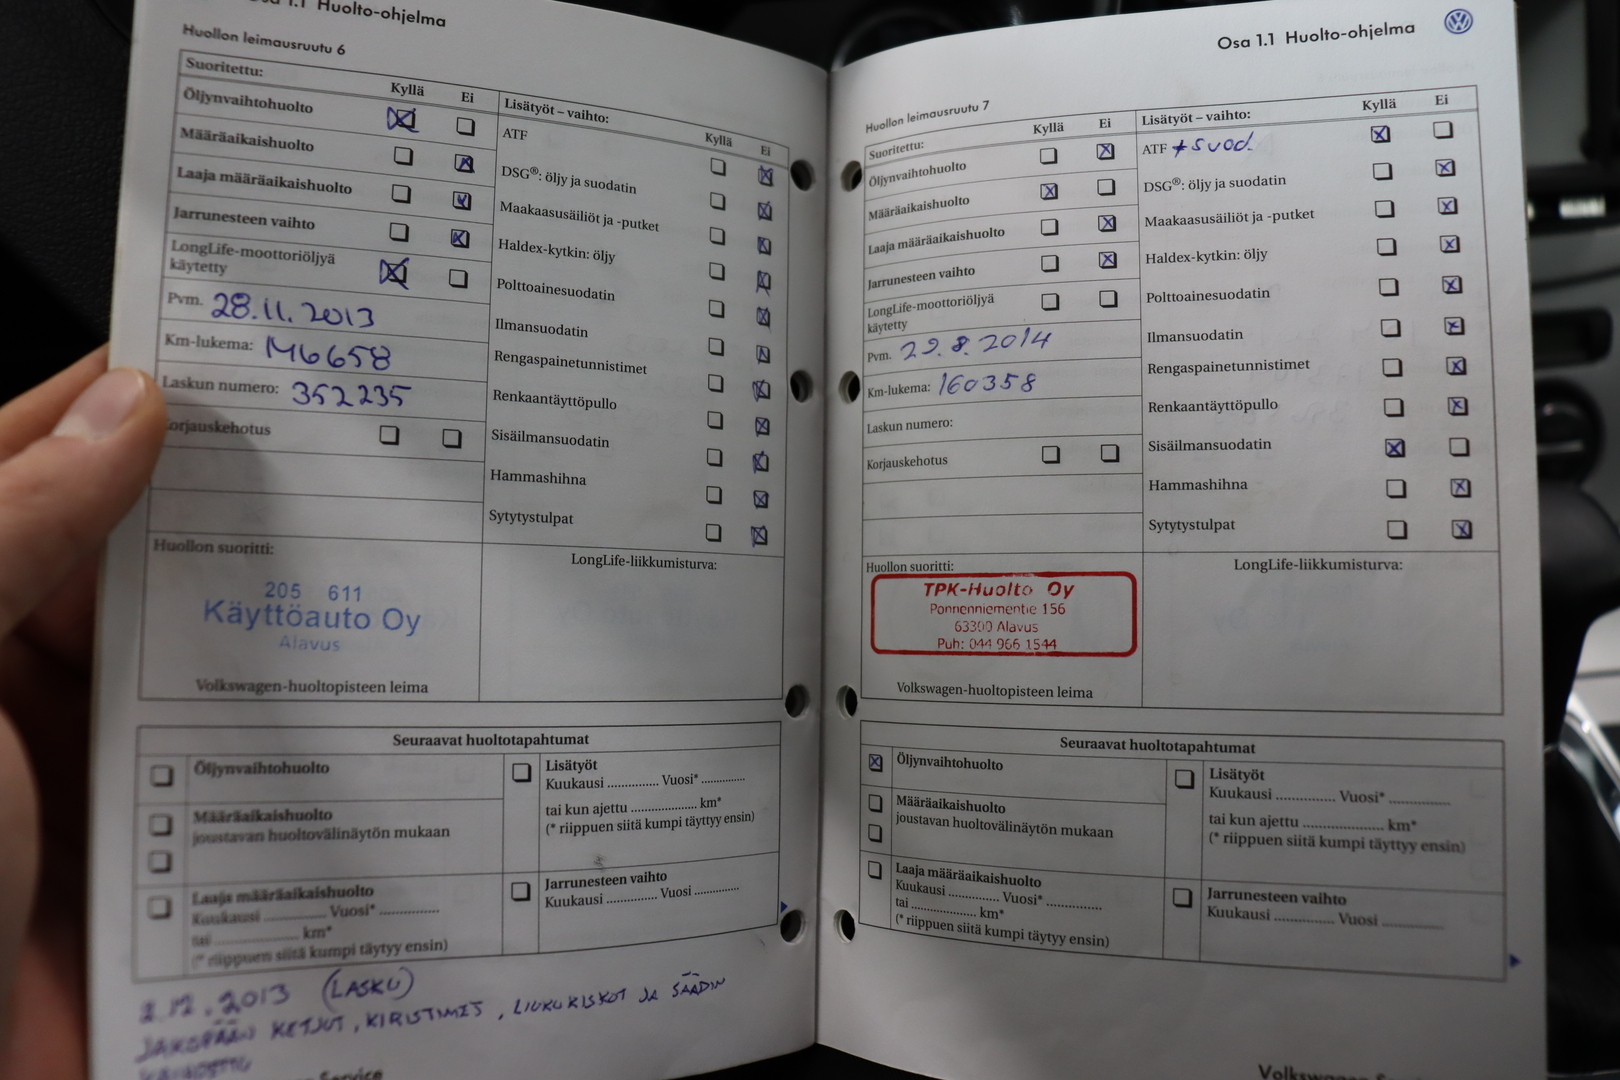 Osa 1.1 Huolto-ohjelma
Huollon leimausruutu 6
Suoritettu:
Kyllä Ei
Öljynvaihtohuolto
Määräaikaishuolto
Laaja määräaikaishuolto
Jarrunesteen vaihto
LongLife-moottoriöljyä
käytetty
Pvm. 28.11.2013
Km-lukema: 146658
Laskun numero: 352235
Korjauskehotus
Lisätyöt – vaihto:
Kyllä Ei
ATF
DSG®: öljy ja suodatin
Maakaasusäiliöt ja -putket
Haldex-kytkin: öljy
Polttoainesuodatin
Ilmansuodatin
Rengaspainetunnistimet
Renkaantäyttöpullo
Sisäilmansuodatin
Hammashihna
Sytytystulpat
Huollon suoritti:
205 611
Käyttöauto Oy
Alavus
Volkswagen-huoltopisteen leima
LongLife-liikkumisturva:
Seuraavat huoltotapahtumat
Öljynvaihtohuolto
Määräaikaishuolto
joustavan huoltovälinäytön mukaan
Laaja määräaikaishuolto
Kuukausi .............. Vuosi* ..............
tai .................... km*
(* riippuen siitä kumpi täytyy ensin)
Lisätyöt
Kuukausi ............. Vuosi* ...........
tai kun ajettu ................ km*
(* riippuen siitä kumpi täyttyy ensin)
Jarrunesteen vaihto
Kuukausi ............. Vuosi ...........
2.12.2013 (LASKU)
JAKOPÄÄN KETJUT, KIRISTIMET, LIUKUKISKOT JA SÄÄDIN
Service
Osa 1.1 Huolto-ohjelma
Huollon leimausruutu 7
Suoritettu:
Kyllä Ei
Öljynvaihtohuolto
Määräaikaishuolto
Laaja määräaikaishuolto
Jarrunesteen vaihto
LongLife-moottoriöljyä
käytetty
Pvm. 29.8.2014
Km-lukema: 160358
Laskun numero:
Korjauskehotus
Lisätyöt – vaihto:
Kyllä Ei
ATF + suod.
DSG®: öljy ja suodatin
Maakaasusäiliöt ja -putket
Haldex-kytkin: öljy
Polttoainesuodatin
Ilmansuodatin
Rengaspainetunnistimet
Renkaantäyttöpullo
Sisäilmansuodatin
Hammashihna
Sytytystulpat
Huollon suoritti:
TPK-Huolto Oy
Ponnenniementie 156
63300 Alavus
Puh: 044 966 1544
Volkswagen-huoltopisteen leima
LongLife-liikkumisturva:
Seuraavat huoltotapahtumat
Öljynvaihtohuolto
Määräaikaishuolto
joustavan huoltovälinäytön mukaan
Laaja määräaikaishuolto
Kuukausi ............. Vuosi* ..............
tai ................ km*
(* riippuen siitä kumpi täytyy ensin)
Lisätyöt
Kuukausi .............. Vuosi* ..............
tai kun ajettu .................... km*
(* riippuen siitä kumpi täyttyy ensin)
Jarrunesteen vaihto
Kuukausi .............. Vuosi ..............
Volkswagen